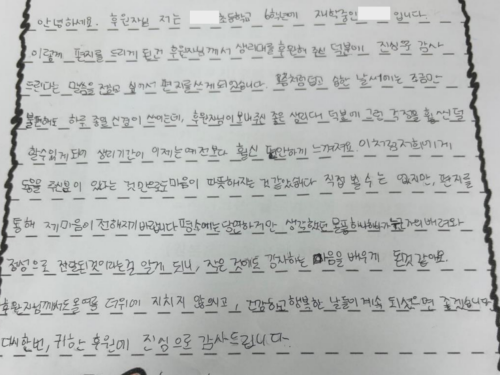 안녕하세요. 후원자님 저는 초등학교 6학년에 재학중인 입니다.
이렇게 편지를 드리게 된건 후원자님께서 생리대를 후원해 주신 덕분에 진심으로 감사
드린다는 말씀을 전하고 싶어서 편지를 쓰게 되었습니다 요즘처럼 덥고 습한 날씨에는 조금만
불편해도 하루 종일 신경이 쓰이는데, 후원자님이 보내주신 좋은 생리대 덕분에 그런 걱정을 훨씬 덜
할수 있게 되어 생리기간이 이제는 예전보다 훨씬 편안하게 느껴져요 이처럼 저희에게
도움을 주신분이 있다는 것 만으로도 마음이 따뜻해지는 것 같았습니다 직접 뵐 수는 없지만, 편지를
통해 제 마음이 전해지기 바랍니다 평소에는 당연하다고만 생각했던 물품 하나하나가 누군가의 배려와
정성으로 전달된것이라는걸 알게 되니, 작은 것에도 감사하는 마음을 배우게 된것 같아요.
후원자님께서도 올여름 더위에 지치지 않으시고, 건강하고 행복한 날들이 계속 되셨으면 좋겠습니다
다시한번, 귀한 후원에 진심으로 감사드립니다.